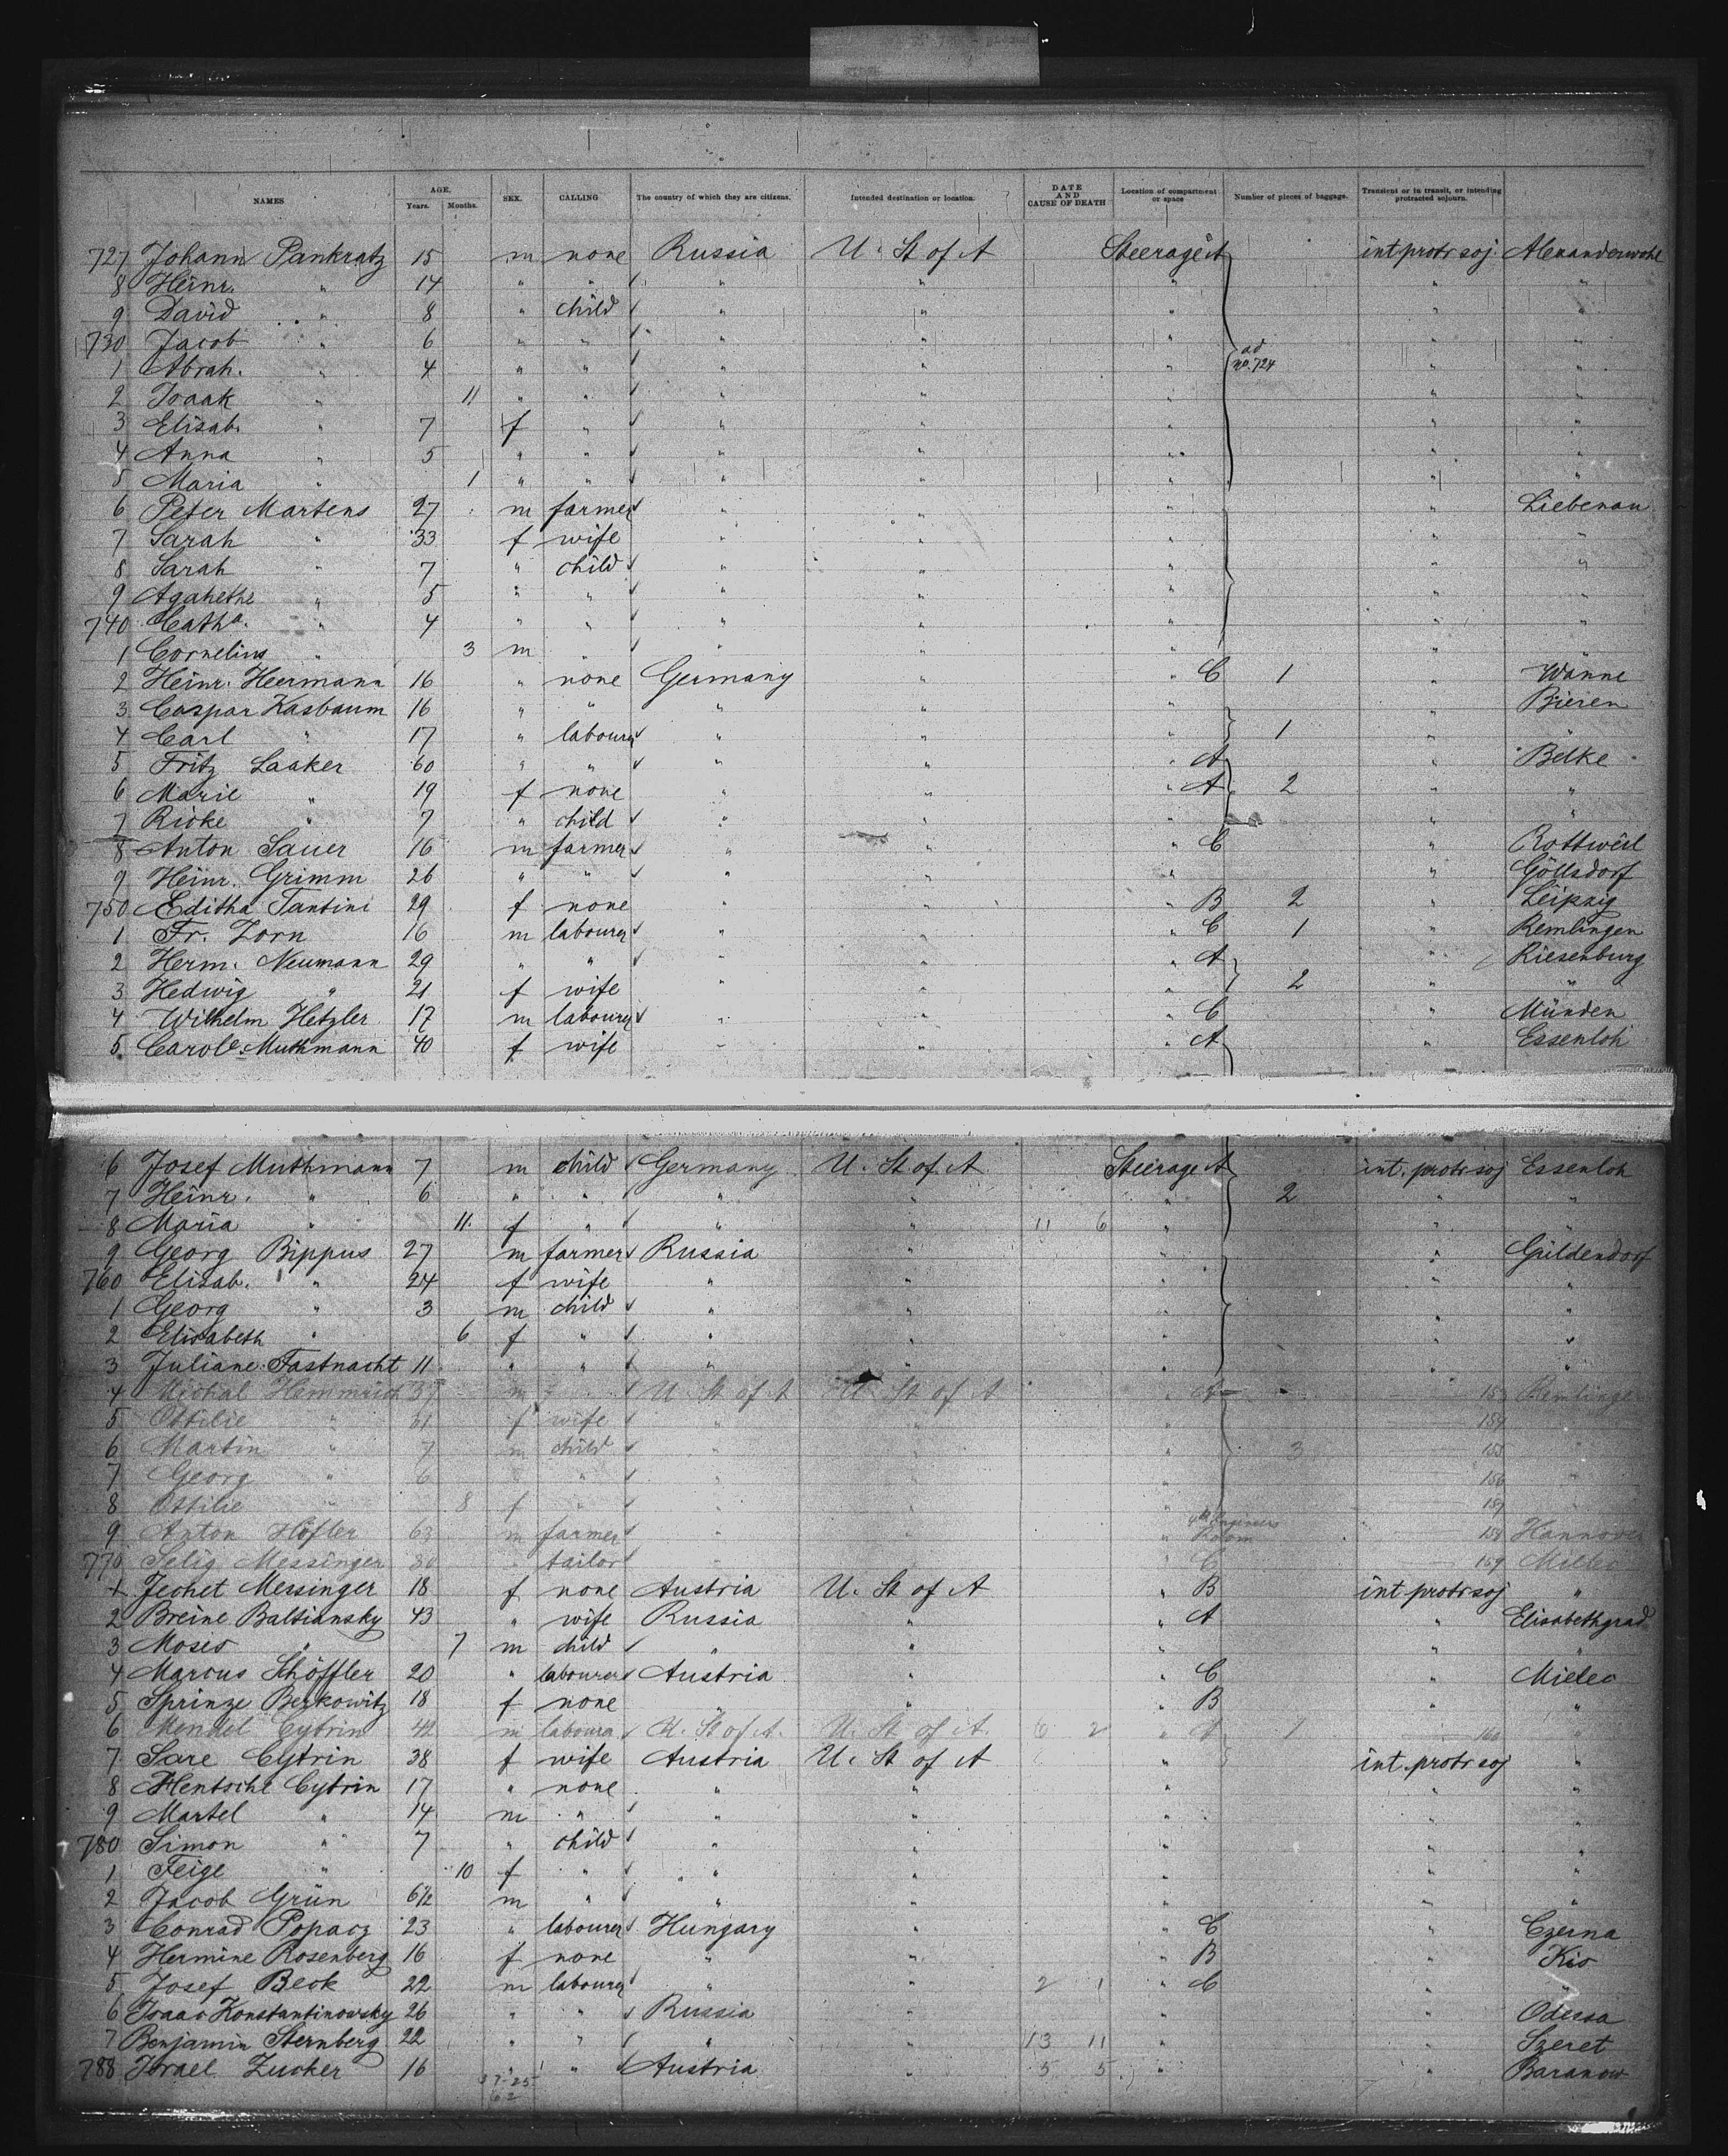 NAMES AGE. Years. Months. SEX. CALLING The country of which they are citizens. Intended destination or location. DATE AND CAUSE OF DEATH Location of compartment or space Number of pieces of baggage. Transient or in transit, or intending protracted sojourn.
727 Johann Pankratz 15 m none Russia U. St of A Steerage A int protr soj. Alexanderwohl
8 Heinr. " 14 " " " " " " "
9 David " 8 " child " " " " "
730 Jacob " 6 " " " " " " "
1 Abrah. " 4 " " " " " ad no. 724 " "
2 Isaak " 11 " " " " " " "
3 Elisab. " 7 f " " " " " "
4 Anna " 5 " " " " " " "
5 Maria " 1 " " " " " " "
6 Peter Martens 27 m farmer " " " " Liebenau
7 Sarah " 33 f wife " " " " "
8 Sarah " 7 " child " " " " "
9 Agahethe " 5 " " " " " " "
740 Catha. " 4 " " " " " " "
1 Cornelius " 3 m " " " " " "
2 Heinr. Heermann 16 " none Germany " " C 1 " Wanne
3 Caspar Kasbaum 16 " " " " " " Bieren
4 Carl " 17 " labourer " " " 1 " "
5 Fritz Laaker 60 " " " " " A " Belke
6 Marie " 19 f none " " " A 2 " "
7 Rieke " 7 " child " " " " "
8 Anton Sauer 16 m farmer " " " C " Rottweil
9 Heinr. Grimm 26 " " " " " " Göllsdorf
750 Editha Tantini 29 f none " " " B 2 " Leipzig
1 Fr. Zorn 16 m labourer " " " C 1 " Remlingen
2 Herm. Neumann 29 " " " " " A " Riesenburg
3 Hedwig " 21 f wife " " " 2 " "
4 Wilhelm Hetzler 17 m labourer " " " C " Münden
5 Carole. Muthmann 40 f wife " " " A " Essenloh
6 Josef Muthmann 7 m child Germany U. St of A Steerage A int. protr soj Essenloh
7 Heinr. " 6 " " " " " 2 " "
8 Maria " 11 f " " " 11 6 " " "
9 Georg Bippus 27 m farmer Russia " " " Güldendorf
760 Elisab. " 24 f wife " " " " "
1 Georg " 3 m child " " " " "
2 Elisabeth " 6 f " " " " " "
3 Juliane Fastnacht 11 " " " " " " "
4 Michal Hemmrich 37 m U. St of A U. St of A " A 153
5 Ottilie " 31 f wife " " " 154
6 Martin " 7 m child " " " 3 155 "
7 Georg " 6 " " " " " 156 "
8 Ottilie " 8 f " " " " 157
9 Anton Höfler 63 m farmer " " " 4th Engineers Room 158 Hannover
770 Selig Messinger 30 " tailor " " " C 159 Mielec
1 Jechet Messinger 18 f none Austria U. St of A " B int protr soj "
2 Breine Baltiansky 43 " wife Russia " " A " Elisabethgrad
3 Moses " 7 m child " " " " "
4 Marcus Schöffler 20 " labourer Austria " " C " Mielec
5 Sprinze Berkowitz 18 f none " " " B " "
6 Mendel Cytrin 42 m laboura U. St of A. U. St of A. 6 2 " A 1 160 "
7 Sare Cytrin 38 f wife Austria U. St of A " int. protr soj "
8 Hentsche Cytrin 17 " none " " " " "
9 Martel " 14 m " " " " " "
780 Simon " 7 " child " " " " "
1 Feige " 10 f " " " " " "
2 Jacob Grün 6½ m " " " " " "
3 Conrad Popacz 23 " labourer Hungary " " C " Czerna
4 Hermine Rosenberg 16 f none " " " B " Kis
5 Josef Beck 22 m labourer " " 2 1 " C " "
6 Isaac Konstantinowsky 26 " " Russia " " " Odessa
7 Benjamin Sternberg 22 " " " " 13 11 " " Szeret
788 Israel Zucker 16 " " Austria " 5 5 " " Baranow